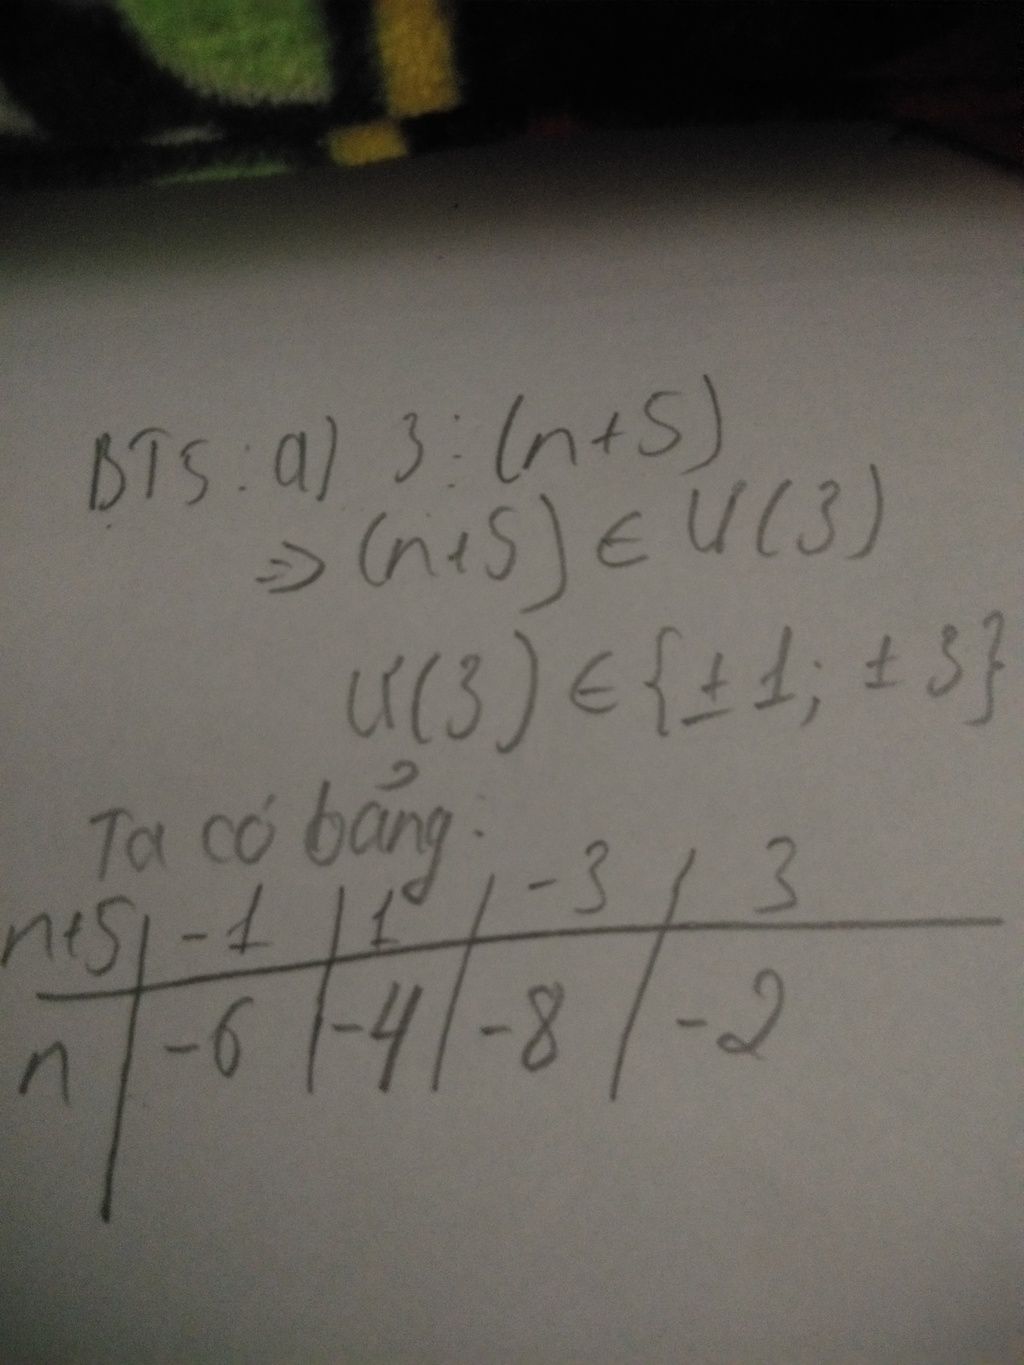 BT5: a) 3 ⋮ (n+5)
=> (n+5) ∈ Ư(3)
Ư(3) ∈ {±1; ±3}
Ta có bảng:
n+5 | -1 | 1 | -3 | 3
n | -6 | -4 | -8 | -2